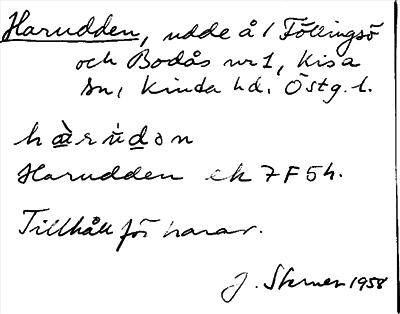 Harudden, udde å 1 Föllingsö
och Bodås nr 1, Kisa
sn, Kinda hd. Östg. l.
hàrúdən
Harudden ek 7F5h.
Tillhåll för harar.
J. 1958